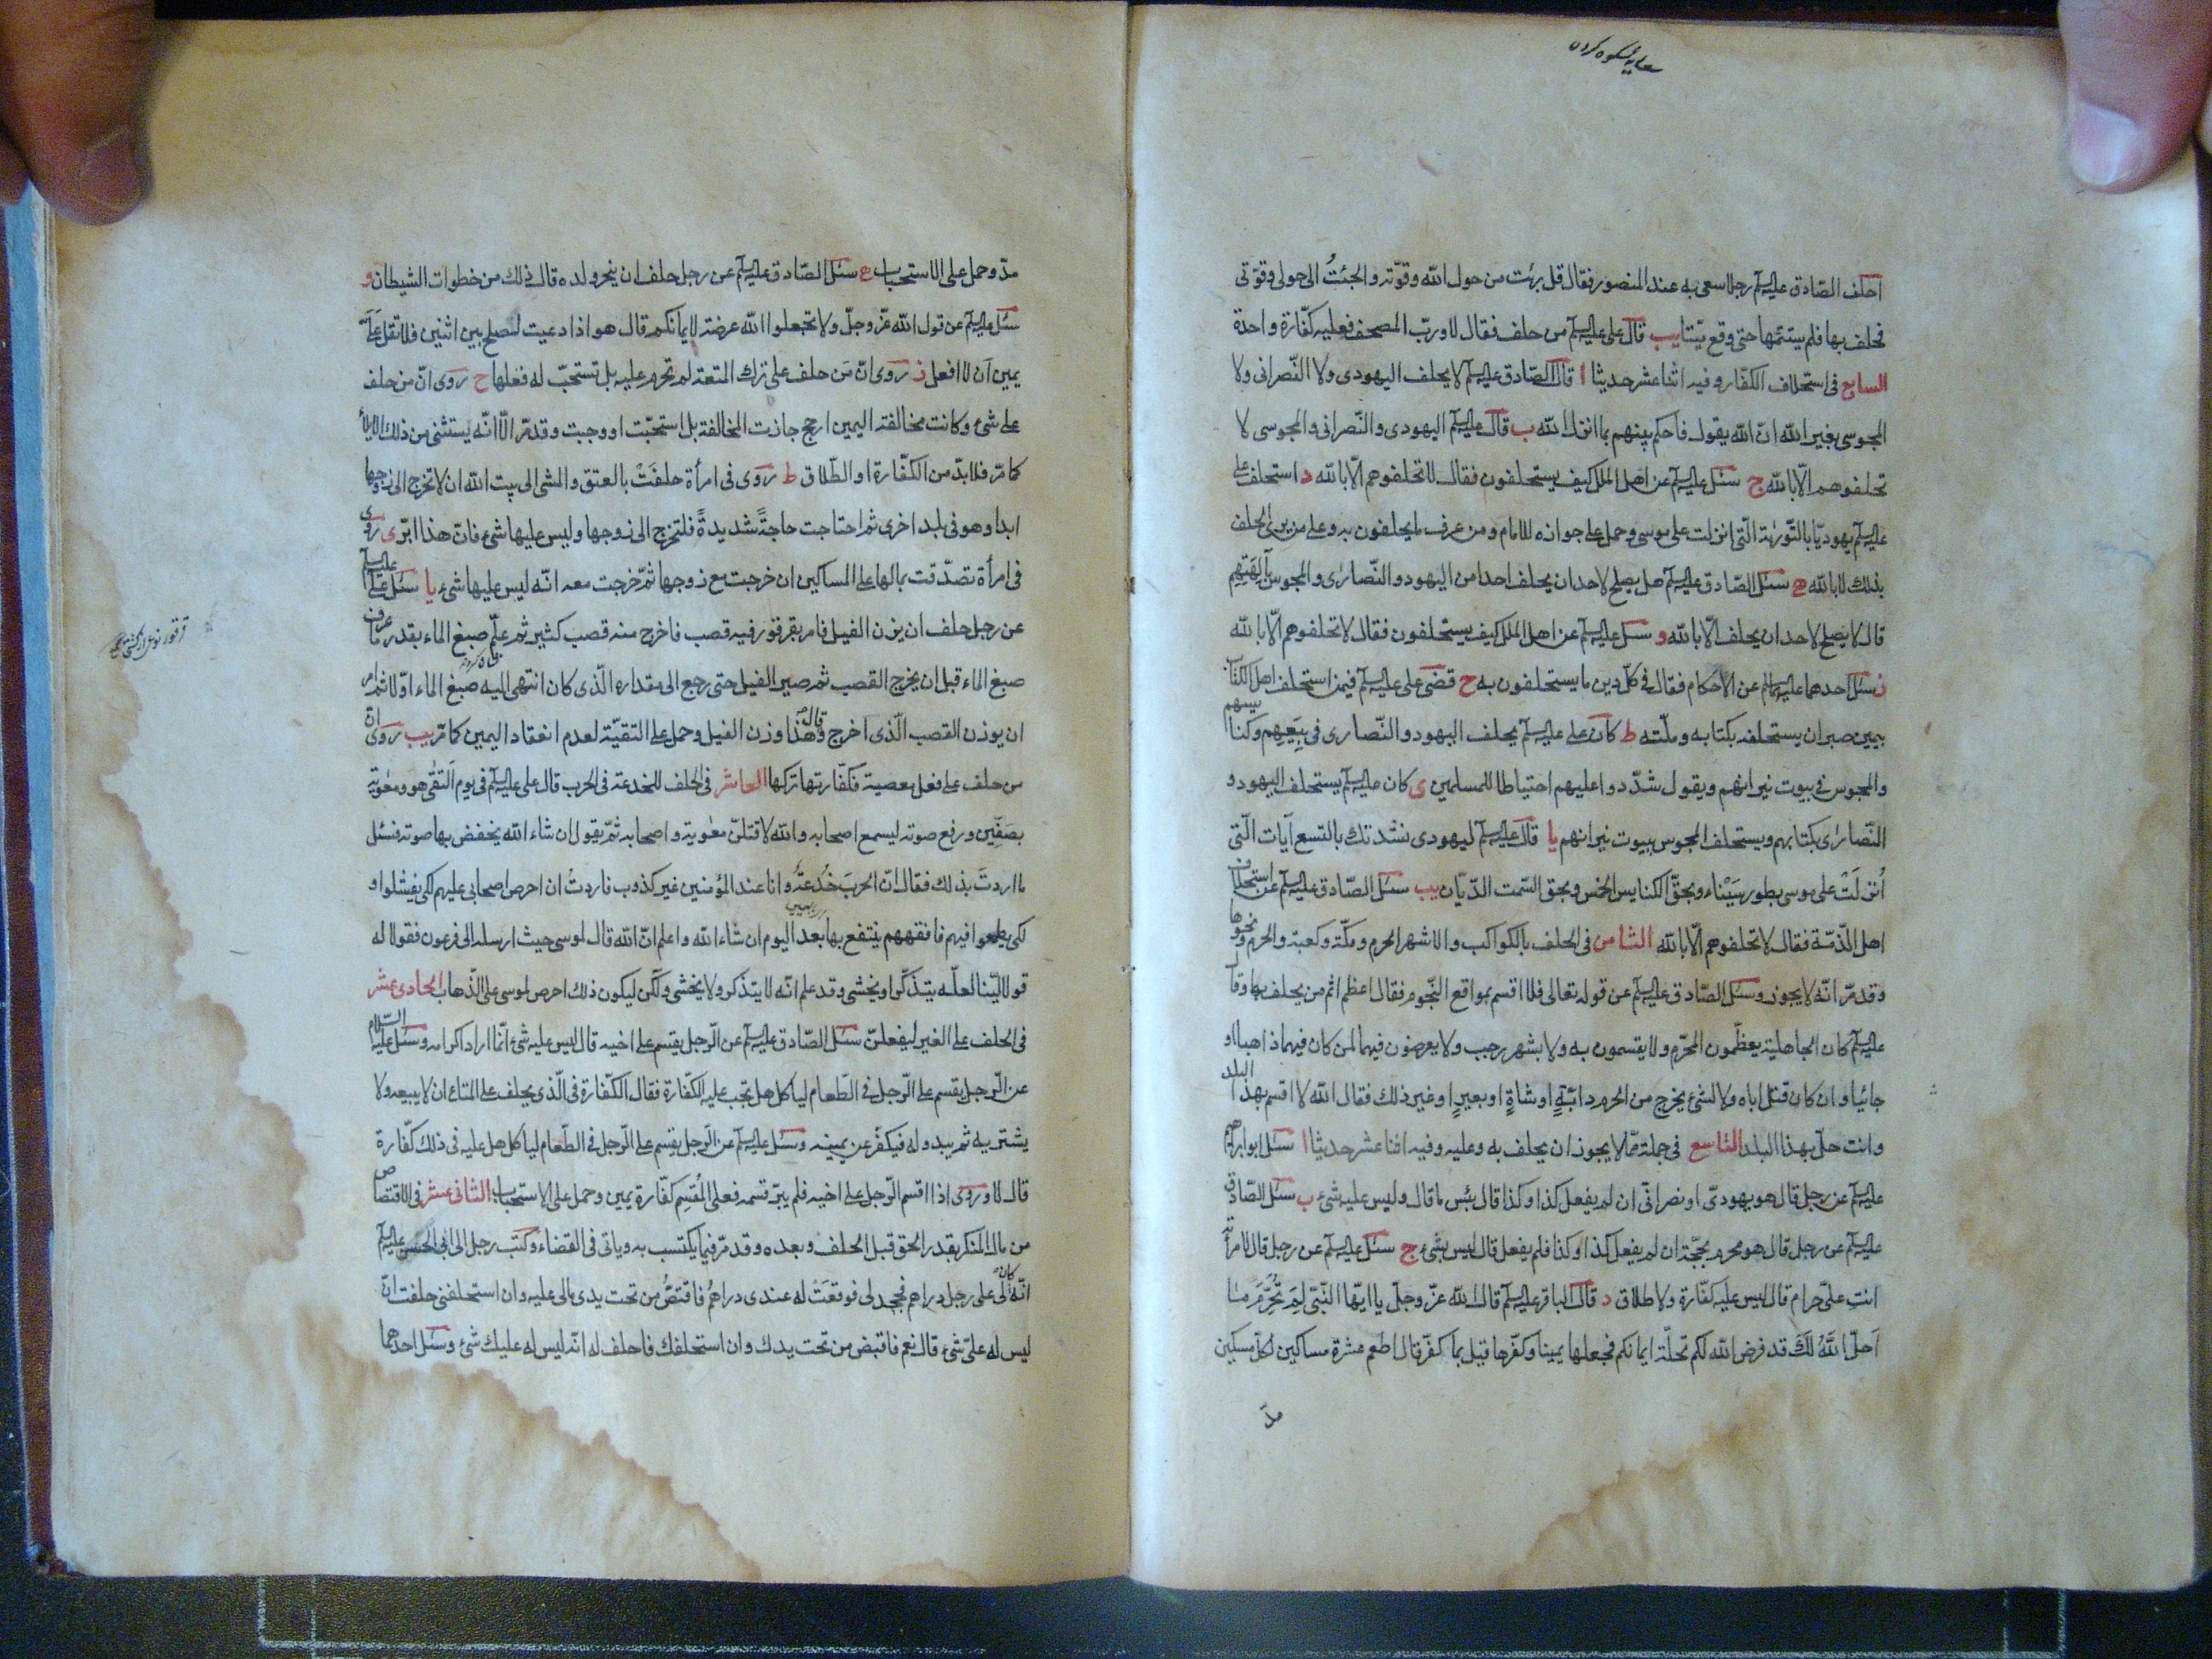 احلف الصّادق عليه السلم رجلا سعى به عند المنصور فقال قل برئت من حول الله وقوّته والجئتُ الى حولى وقوّتى
فحلف بها فلم يستتمّها حتى وقع ميّتا يب قال على عليه السلم من حلف فقال لا وربّ المصحف فعليه كفّارة واحدة
السابع فى استحلاف الكفّار وفيه اثنا عشر حديثا ا قال الصّادق عليه السلم لا يحلف اليهودى ولا النّصرانى ولا
المجوسى بغير الله انّ الله يقول فاحكم بينهم بما انزل الله ب قال عليه السلم اليهودى والنّصرانى والمجوسى لا
تحلفوهم الّا بالله ج سئل عليه السلم عن اهل الملل كيف يستحلفون فقال لا تحلفوهم الّا بالله د استحلف على
عليه السلم يهوديّا بالتّورٰية الّتى انزلت على موسى وحمل على جوازه للامام ومن عرف ما يحلفون به وعلى من يرى الحلف
بذلك لا بالله ه سئل الصّادق عليه السلم هل يصلح لاحد ان يحلف احدا من اليهود والنّصارى والمجوس بآلِهَتِهِم
قال لا يصلح لاحد ان يحلف الّا بالله و سئل عليه السلم عن اهل الملل كيف يستحلفون فقال لا تحلفوهم الّا بالله
ز سئل احدهما عليهما السلم عن الاحكام فقال فى كلّ دين ما يستحلفون به ح قضى على عليه السلم فيمن استحلف اهل الكتاب
بيمين صبر ان يستحلفه بكتابه وملّته ط كان على عليه السلم يحلف اليهود والنّصارى فى بِيَعِهِم وكنايسهم
والمجوس فى بيوت نيرانهم ويقول شدّدوا عليهم احتياطا للمسلمين ى كان عليه السلم يستحلف اليهود و
النّصارى بكتابهم ويستحلف المجوس ببيوت نيرانهم يا قال عليه السلم ليهودى نشدتك بالتسع آيات الّتى
اُنزلَتْ على موسى بطور سَيْناء وبحقّ الكنايس الخمس وبحق السّمت الدّيّان يب سئل الصّادق عليه السلم عن استحلاف
اهل الذّمّة فقال لا تحلفوهم الّا بالله الثامن فى الحلف بالكواكب والاشهر الحرم ومكّة وكعبة والحرم ونحوها
وقد مرّ انّه لا يجوز وسئل الصّادق عليه السلم عن قوله تعالى فلا اقسم بمواقع النّجوم فقال اعظم اثم من يحلف بها وقال
عليه السلم كان الجاهلية يعظّمون المحرّم ولا يقسمون به ولا بشهر رجب ولا يعرضون فيهما لمن كان فيهما ذاهبا او
جائيا وان كان قتل اباه ولا لشئ يخرج من الحرم دابّةٍ او شاةٍ او بعيرٍ او غير ذلك فقال الله لا اقسم بهذا البلد
وانت حلّ بهذا البلد التاسع فى جملة ممّا لا يجوز ان يحلف به وعليه وفيه اثنا عشر حديثا ا سئل ابو ابراهيم
عليه السلم عن رجل قال هو يهودىّ او نصرانىّ ان لم يفعل كذا وكذا قال بئس ما قال وليس عليه شئ ب سئل الصّادق
عليه السلم عن رجل قال هو محرم بحجّة ان لم يفعل كذا وكذا فلم يفعل قال ليس بشئ ج سئل عليه السلم عن رجل قال لامرأته
انتِ علىّ حرام قال ليس عليه كفّارة ولا طلاق د قال الباقر عليه السلم قال الله عزّ وجلّ يا ايّها النّبىّ لِمَ تُحَرِّمُ ما
اَحَلّ اللّٰهُ لَكَ قد فرض الله لكم تحلّة ايمانكم فجعلها يمينا وكفّرها قيل بما كفّر قال اطعم عشرة مساكين لكلّ مسكين
مدّ
مدّ وحمل على الاستحباب ه سئل الصّادق عليه السلم عن رجل حلف ان ينحر ولده قال ذلك من خطوات الشيطان و
سئل عليه السلم عن قول الله عزّ وجلّ ولا تجعلوا الله عرضة لايمانكم قال هو اذا دعيت لتصلح بين اثنين فلا تقل عَلَىَّ
يمين اَن لا افعل ز روى انّ مَن حلف على ترك المتعة لم تحرم عليه بل تستحبّ له فعلها ح روى انّ من حلف
على شئ وكانت مخالفة اليمين ارجح جازت المخالفة بل استحبّت او وجبت وقد مرّ الّا انّه يستثنى من ذلك الايلاء
كما مرّ فلا بدّ من الكفّارة او الطّلاق ط روى فى امرأة حلفَتْ بالعتق والمشى الى بيت الله ان لا تخرج الى زوجها
ابدا وهو فى بلد اخرى ثم احتاجت حاجةً شديدةً فلتخرج الى زوجها وليس عليها شئ فانّ هذا ابرّ ى روى
فى امرأة تصدّقت بمالها على المساكين ان خرجت مع زوجها ثمّ خرجت معه انّه ليس عليها شئ يا سئل على عليه السلم
عن رجل حلف ان يزن الفيل فامر بقرقور فيه قصب فاخرج منه قصب كثير ثم علّم صبغ الماء بقدر ما عرف
صبغ الماء قبل ان يخرج القصب ثم صير الفيل حتى رجع الى مقداره الّذى كان انتهى اليه صبغ الماء اوّلا ثم امر
ان يوزن القصب الّذى اخرج وقال هذا وزن الفيل وحمل على التقيّة لعدم انعقاد اليمين كما مرّ يب روى انّ
من حلف على فعل معصية فكفّارتها تركها العاشر فى الحلف للخدعة فى الحرب قال على عليه السلم فى يوم اَلتقٰى هو ومعٰوية
بصَفّين ورفع صوته ليسمع اصحابه والله لاقتلنّ معٰوية واصحابه ثمّ يقول ان شاء الله يخفض بها صوته فسئل
ما اردتَ بذلك فقال انّ الحربَ خُدعَةٌ وانا عند المؤمنين غير كذوب فاردتُ ان احرص اصحابى عليهم لكى يفشلوا و
لكى يطمعوا فيهم فافقههم ينتفع بها بعد اليوم ان شاء الله واعلم انّ الله قال لموسى حيث ارسله الى فرعون فقولا له
قولا ليّنا لعلّه يتذكّر او يخشى وقد علم انّه لا يتذكر ولا يخشى ولكن ليكون ذلك احرص لموسى على الذّهاب الحادى عشر
فى الحلف على الغير ليفعلنّ سئل الصّادق عليه السلم عن الرّجل يقسم على اخيه قال ليس عليه شئ انّما اراد اكرامه وسئل عليه السّلام
عن الرّجل يقسم على الرّجل فى الطّعام لياكل هل تجب عليه الكفّارة فقال الكفّارة فى الّذى يحلف على المتاع ان لا يبيعه ولا
يشتريه ثم يبدو له فيكفّر عن يمينه وسئل عليه السلم عن الرّجل يقسم على الرّجل فى الطّعام لياكل هل عليه فى ذلك كفّارة
قال لا وروى اذا اقسم الرّجل على اخيه فلم يبرّ قسمه فعلى المُقْسِمِ كفّارة يمين وحمل على الاستحباب الثانى عشر فى الاقتصاص
من مال المنكر بقدر الحق قبل الحلف وبعده وقد مرّ فيما يكتسب به وياتى فى القضاء وكتب رجل الى ابى الحسن عليه السلم
انّه كان لى على رجل دراهم فجحدنى فوقعَتْ له عندى دراهمُ فاقتصُّ من تحت يدى مالى عليه وان استحلفنى حلفت انّ
ليس له علىّ شئ قال نعم فاقبض من تحت يدك وان استحلفك فاحلف له انّه ليس له عليك شئ وسئل احدهما